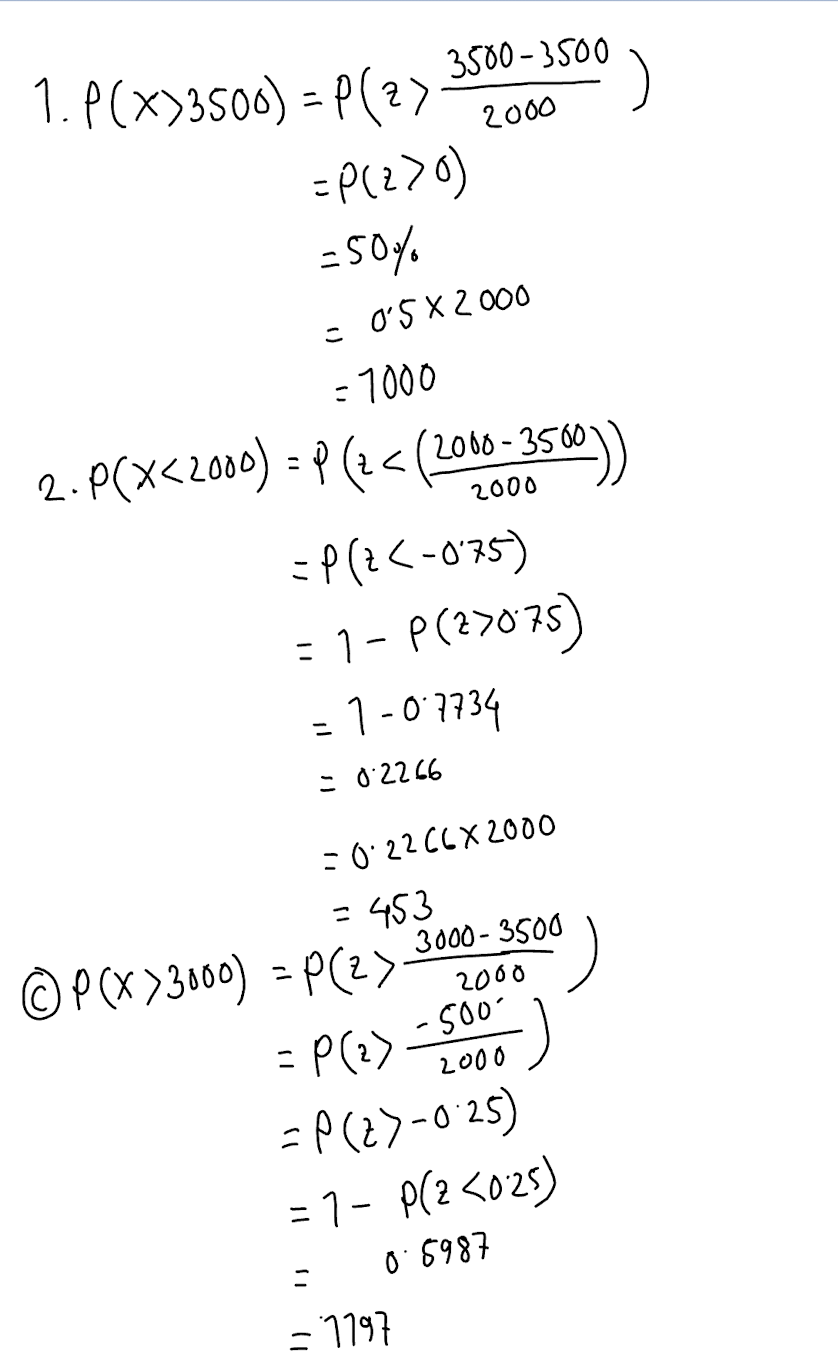 1. P(X>3500) = P(z> (3500-3500)/2000 )
= P(z>0)
= 50%
= 0.5 X 2000
= 1000
2. P(X<2000) = P(z<((2000-3500)/2000))
= P(z<-0.75)
= 1 - P(z>0.75)
= 1 - 0.7734
= 0.2266
= 0.2266 X 2000
= 453
Ⓒ P(X>3000) = P(z> (3000-3500)/2000 )
= P(z> -500/2000 )
= P(z>-0.25)
= 1 - P(z<0.25)
= 0.5987
= 1197